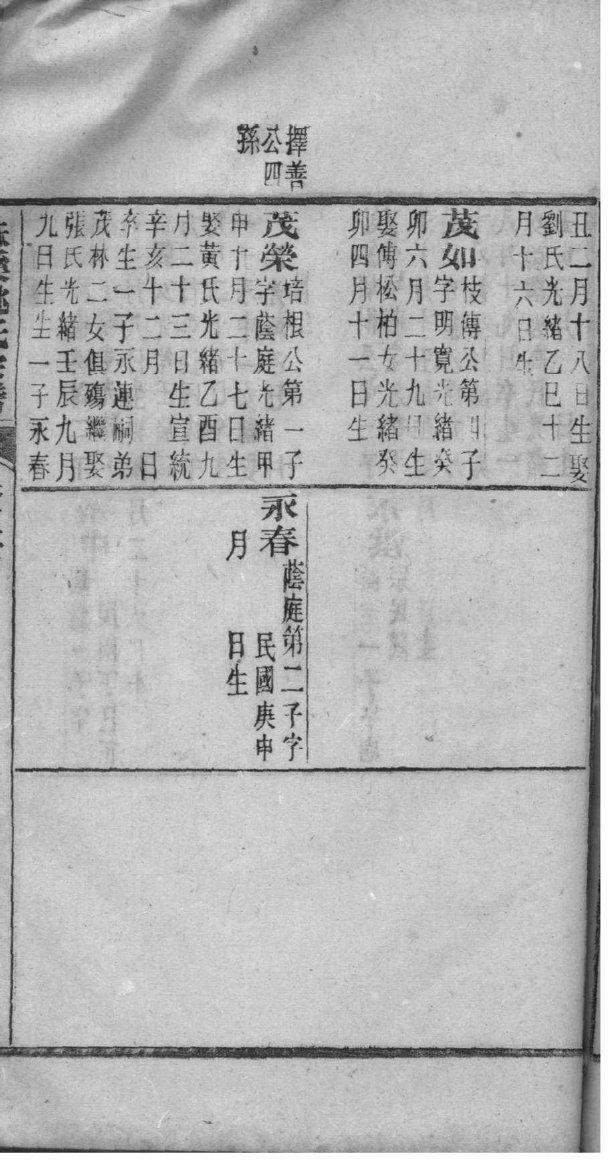 擇善
公四
孫
丑二月十八日生娶
劉氏光緒乙巳十二
月十六日生
茂如
枝傳公第四子
字明寬光緒癸
卯六月二十九日生
娶傅松柏女光緒癸
卯四月十一日生
茂榮
培根公第一子
字蔭庭光緒甲
申十月二十七日生
娶黃氏光緒乙酉九
月二十三日生宣統
辛亥年二月 日
卒生一子永連嗣弟
茂林二女俱殤繼娶
張氏光緒壬辰九月
九日生生一子永春
永春
蔭庭第二子字
民國庚申
月 日生